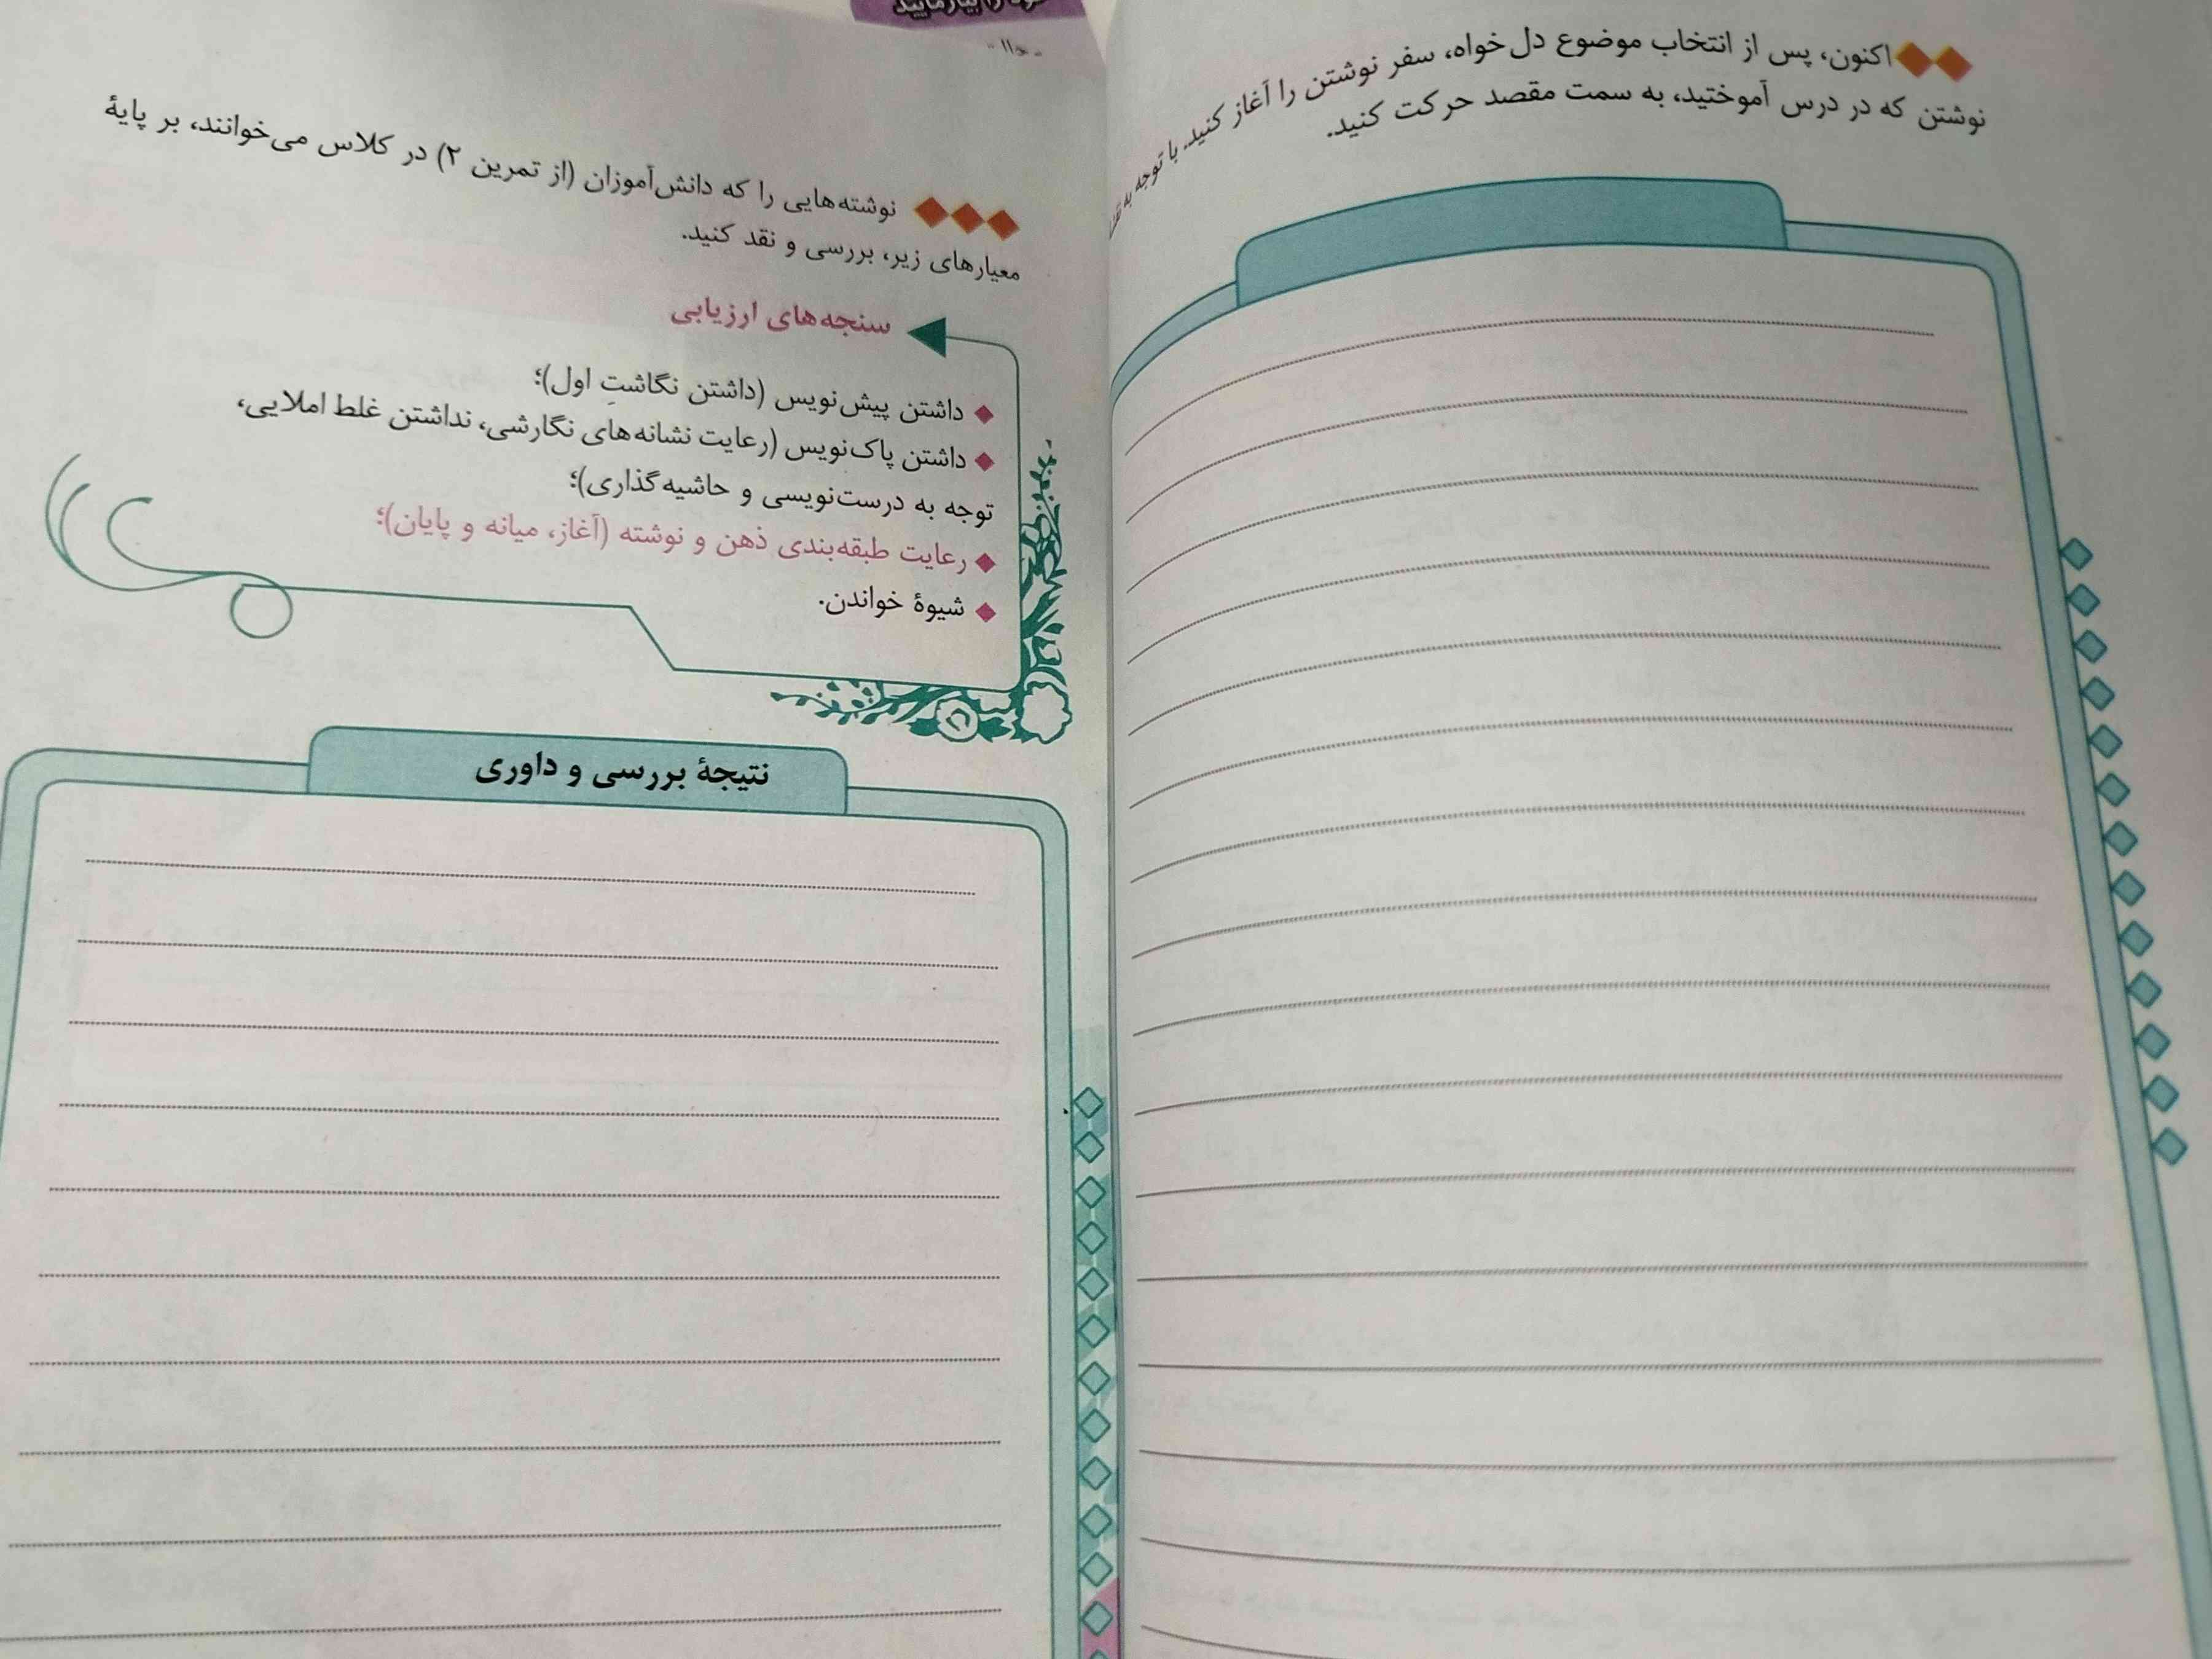 اکنون، پس از انتخاب موضوع دل‌خواه، سفر نوشتن را آغاز کنید. با توجه به
نوشتن که در درس آموختید، به سمت مقصد حرکت کنید.
نوشته‌هایی را که دانش‌آموزان (از تمرین ۲) در کلاس می‌خوانند، بر پایهٔ
معیارهای زیر، بررسی و نقد کنید.
سنجه‌های ارزیابی
داشتن پیش‌نویس (داشتن نگاشتِ اول)؛
داشتن پاک‌نویس (رعایت نشانه‌های نگارشی، نداشتن غلط املایی،
توجه به درست‌نویسی و حاشیه‌گذاری)؛
رعایت طبقه‌بندی ذهن و نوشته (آغاز، میانه و پایان)؛
شیوهٔ خواندن.
نتیجهٔ بررسی و داوری